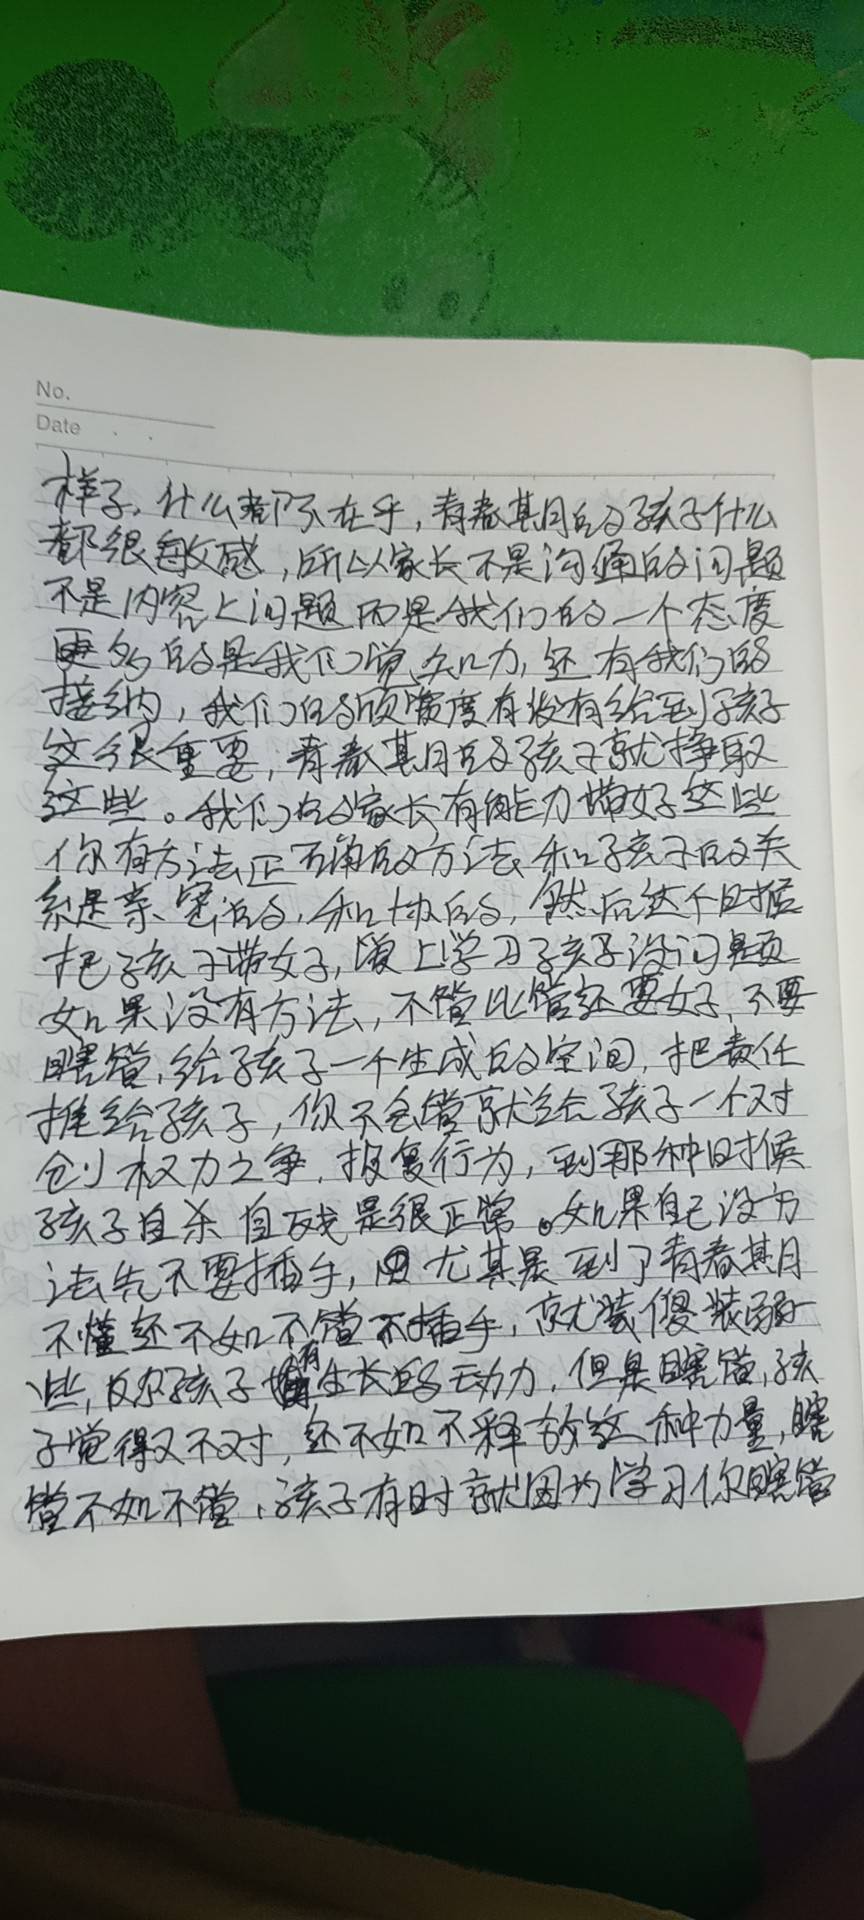 No.
Date
样子，什么都不在乎，青春期的孩子什么
都很敏感，所以家长不是沟通的问题
不是内容上问题而是我们的一个态度
更多的是我们觉知力，还有我们的
接纳，我们的宽度有没有给到孩子
这个很重要，青春期的孩子就争取
这些。我们的家长有能力带好这些
你有方法正确的方法和孩子的关
系是亲密的，和协的，然后这个时候
把孩子带好，上学习孩子没问题
如果没有方法，不管比管还要好，不要
瞎管，给孩子一个生成的空间，把责任
推给孩子，你不会管就给孩子一个对
创权力之争，报复行为，到那种时候
孩子自杀自残是很正常。如果自己没方
法先不要插手，尤其是到了青春期
不懂还不如不管不插手，就装傻装弱一
些，反尔孩子有生长的动力，但是瞎管，孩
子觉得又不对，还不如不释放这种力量，瞎
管不如不管，孩子有时就因为学习你瞎管